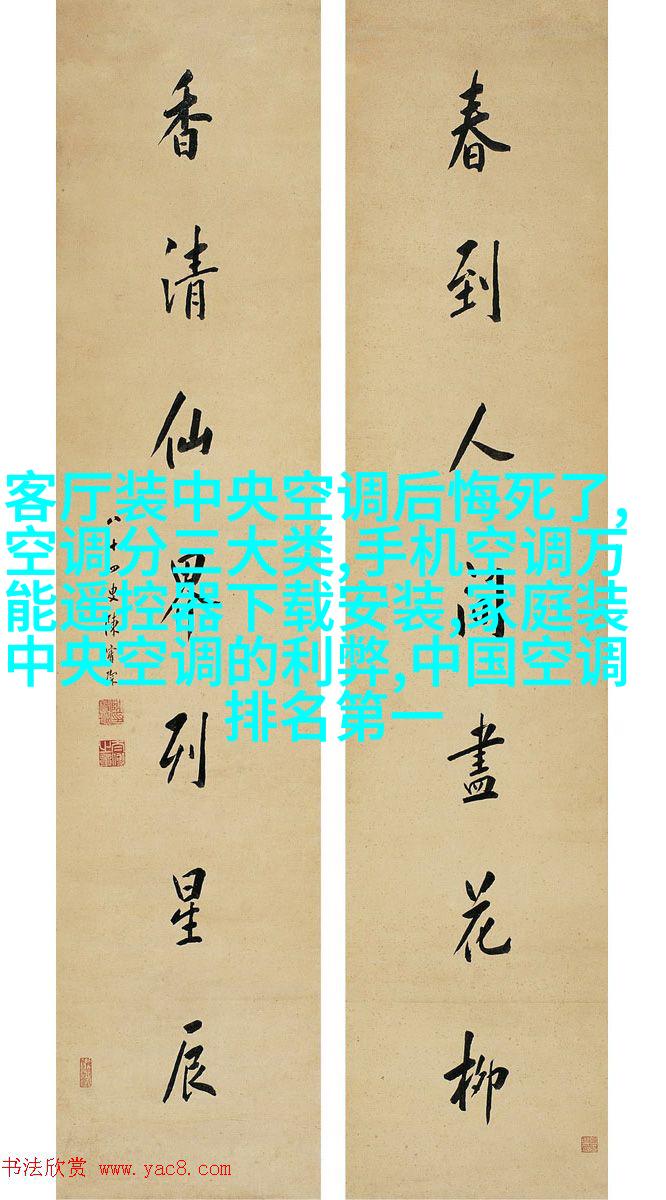 春到人間盡花柳
香清仙界列星辰
八十四叟陳寶琛
客厅装中央空调后悔死了,
空调分三大类,手机空调万
能遥控器下载安装,家庭装
中央空调的利弊,中国空调
排名第一
书法欣赏 www.yac8.com